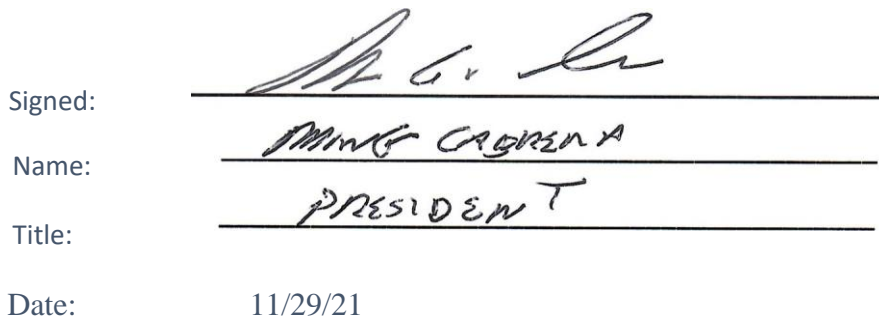 Signed:
Name: MING CABRERA
Title: PRESIDENT
Date: 11/29/21